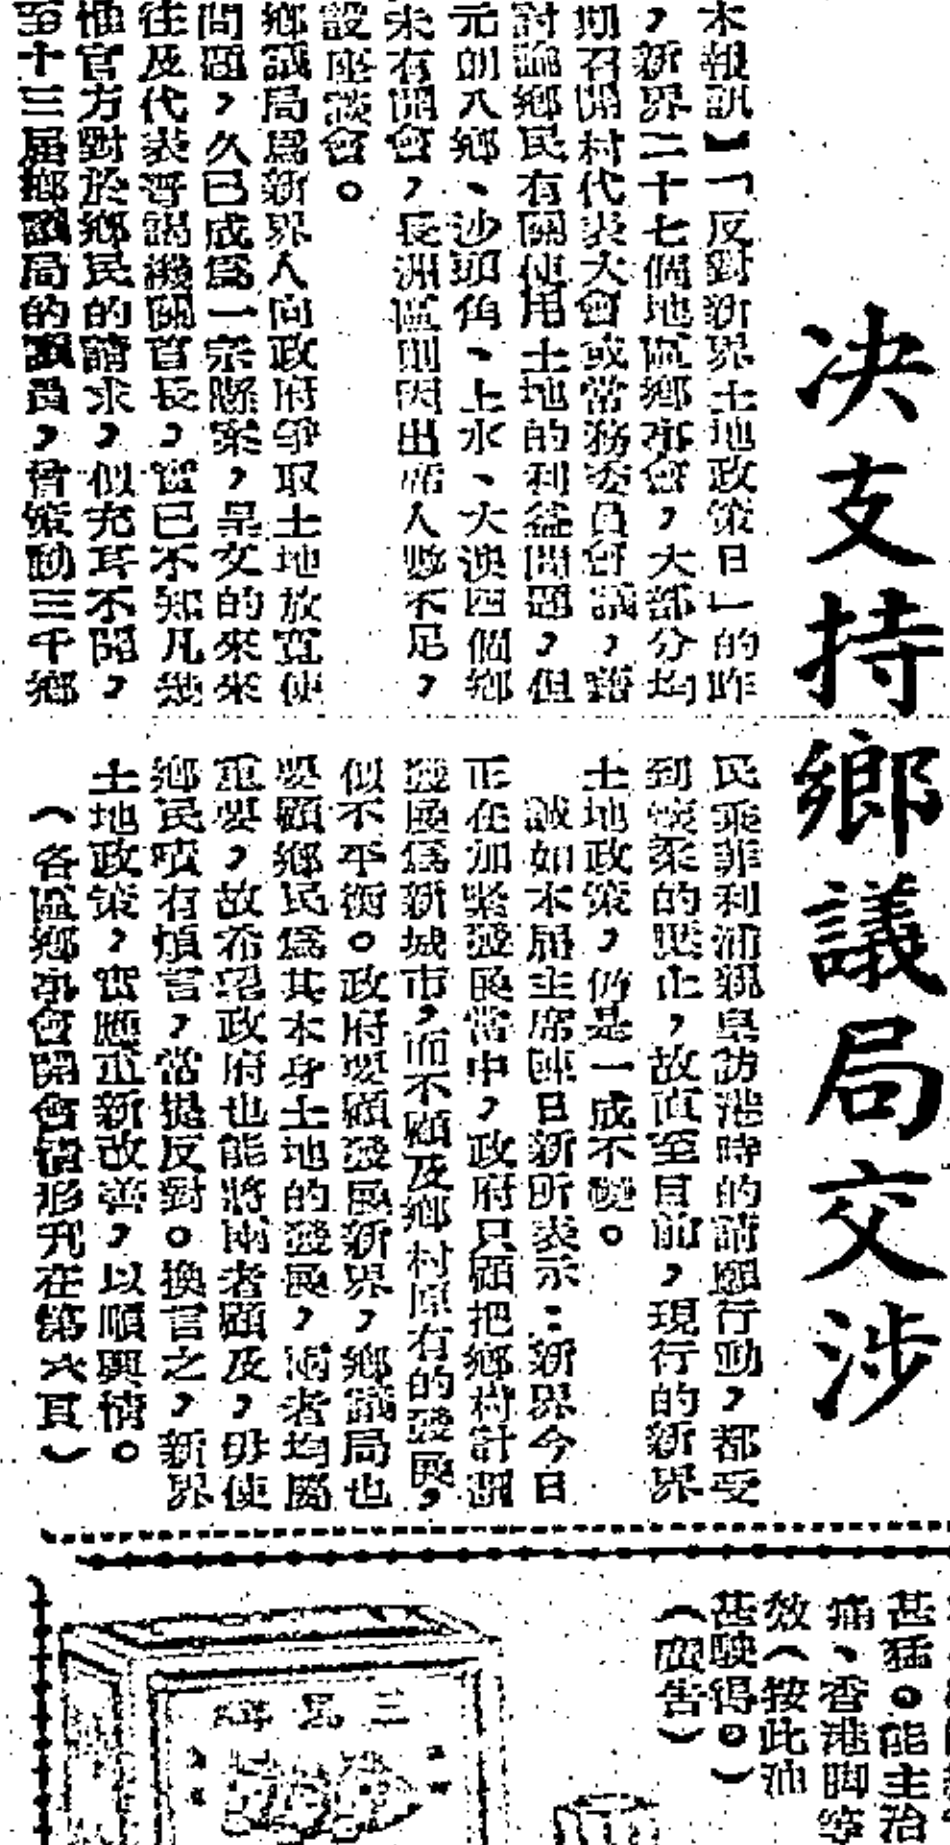 决支持鄉議局交涉
本報訊】「反對新界土地政策日」的昨
，新界二十七個地區鄉事會，大部分均
期召開村代表大會或常務委員會議，藉
討論鄉民有關使用土地的利益問題，但
元朗八鄉、沙頭角、上水、大澳四個鄉
未有開會，長洲區則因出席人數不足，
設座談會。
鄉議局爲新界人向政府爭取土地放寬使
問題，久已成爲一宗懸案，呈文的來來
往及代表晋謁機關首長，實已不知凡幾
惟官方對於鄉民的請求，似充耳不聞，
至十三屆鄉議局的議員，曾策動三千鄉
民乘菲利浦親皇訪港時的請願行動，都受
到懷柔的壓止，故直至目前，現行的新界
土地政策，仍是一成不變。
誠如本屆主席陳日新所表示：新界今日
正在加緊發展當中，政府只顧把鄉村計劃
發展爲新城市，而不顧及鄉村原有的發展，
似不平衡。政府要顧發展新界，鄉議局也
要顧鄉民爲其本身土地的發展，兩者均屬
重要，故希望政府也能將兩者顧及，毋使
鄉民嘖有煩言，常提反對。換言之，新界
土地政策，實應重新改善，以順輿情。
（各區鄉事會開會情形刋在第六頁）
甚猛。能主治
痛、香港脚等
效（按此油
甚駛得。）
（廣告）
三馬牌